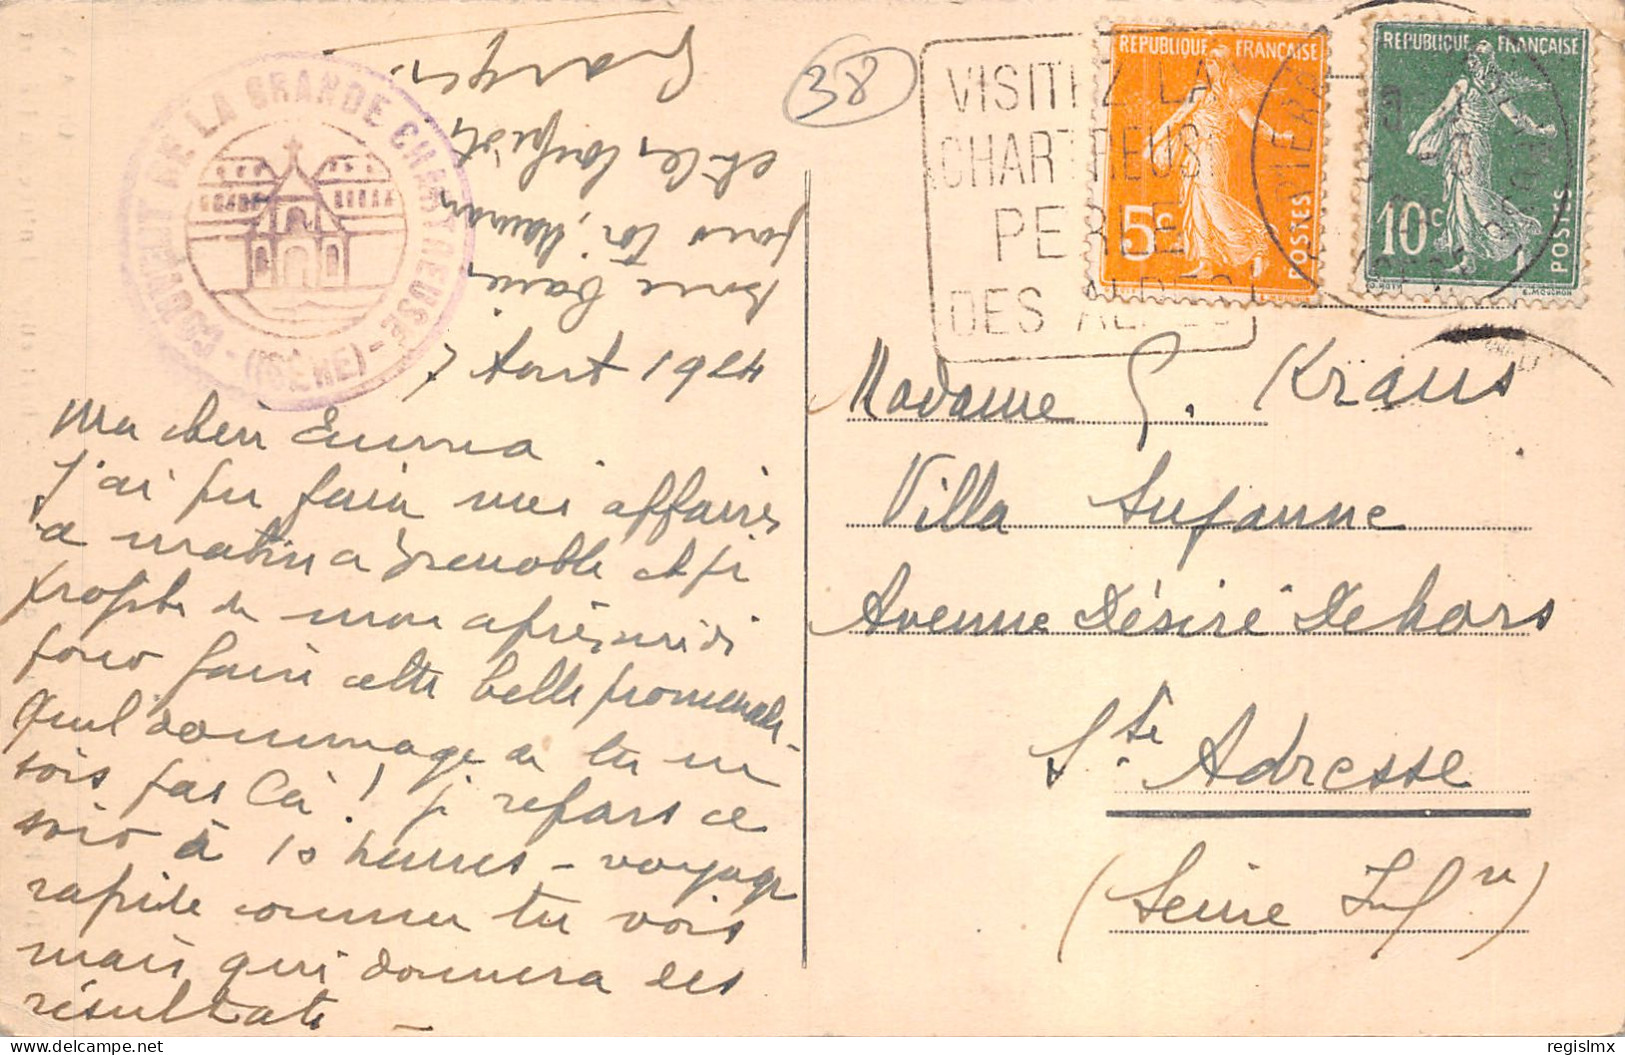 COUVENT DE LA GRANDE CHARTREUSE
- (ISÈRE) -
38
VISITEZ LA
CHARTREUSE
PERLE
DES ALPES
REPUBLIQUE FRANÇAISE
5c
POSTES
REPUBLIQUE FRANÇAISE
10c
POSTES
Aout 1924
Ma chère Emma.
J'ai pu faire mes affaires
ce matin à Grenoble et je
profite de mon après midi
pour faire cette belle promenade -
Quel dommage que tu ne
sois pas là ! je repars ce
soir à 10 heures - voyage
rapide comme tu vois
mais qui donnera des
résultats -
bons baisers
pour toi, Maman
et les
Georges.
Madame G. Kraus
Villa Suzanne
Avenue Désiré Dehors
Ste Adresse
(Seine Infre)
regislmx
delcampe.net